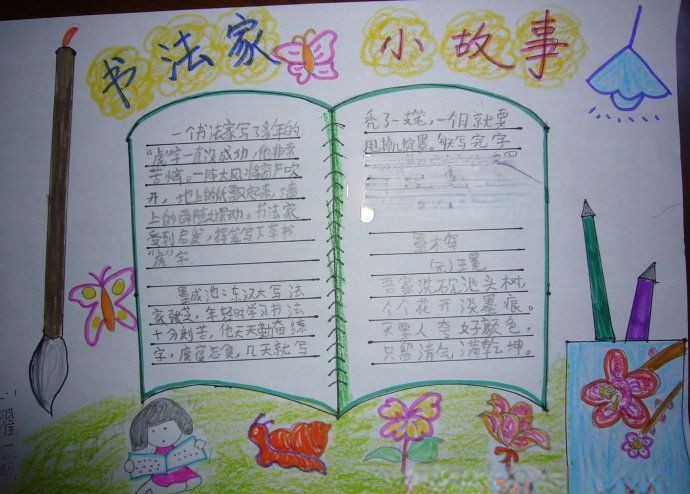 书法家 小故事
一个书法家写了多年的
"虎"字一直没成功,他非常
苦恼。一阵大风将窗户吹
开,地上的纸飘起来,墙
上的
书法家
受到启发,挥笔写下草书
"虎"字。
墨成池:东汉大写法
家张芝,年轻时学习书法
十分刻苦,他天天勤奋练
字,废寝忘食,几天就写
秃了一支笔,一个月就要
用掉几锭墨。每次写完字
墨梅
(元)王冕
吾家洗砚池头树,
个个花开淡墨痕。
不要人夸好颜色,
只留清气满乾坤。